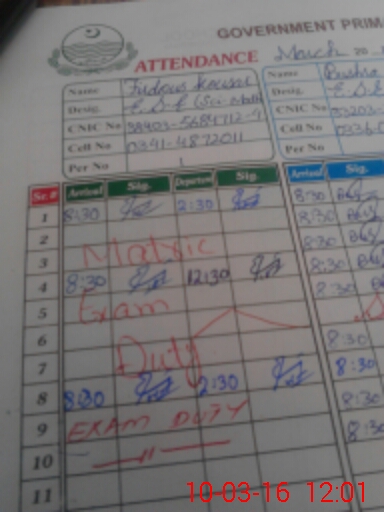 GOVERNMENT PRIM
ATTENDANCE March 20
Name Firdous Kousar
Desig. E.S.E (Sci Math
CNIC No 38403-5684712-4
Cell No 0341-4872011
Per No
Name Bushra
Desig. E.S.E
CNIC No 33203-
Cell No 0336-
Per No
Sr.# Arrival Sig. Departure Sig. Arrival Sig.
1 8:30 2:30 8:30
2 8:30
3 Matric 8:30
4 8:30 12:30 8:30
5 Exam 8:30
6
7 Duty 8:30
8 8:30 2:30 8:30
9 EXAM DUTY 8:30
10 — 11 — 8:30
11
10-03-16 12:01